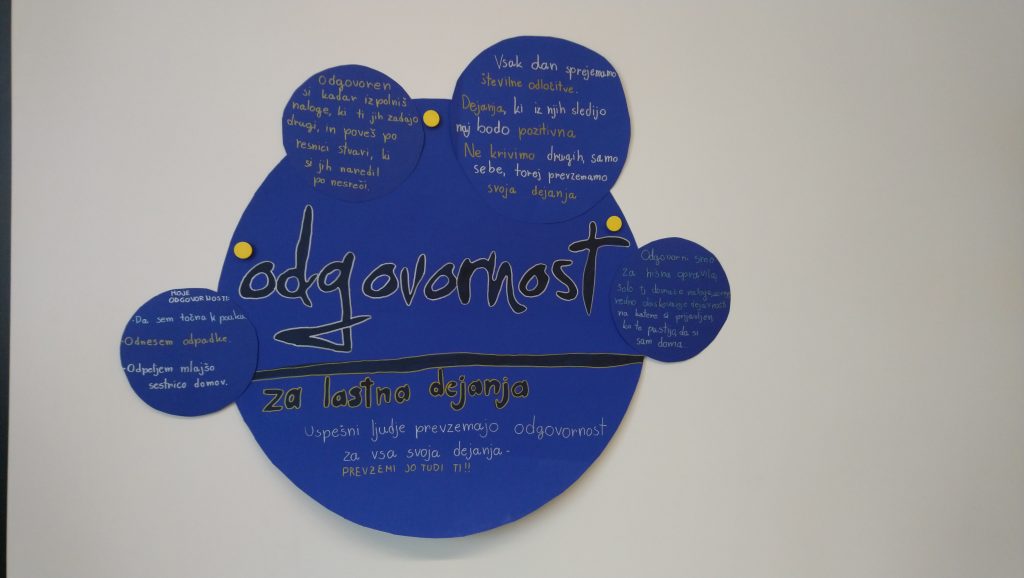 Odgovoren
si kadar izpolniš
naloge, ki ti jih zadajo
drugi, in poveš po
resnici stvari, ki
si jih naredil
po nesreči.
Vsak dan sprejemamo
številne odločitve.
Dejanja, ki iz njih sledijo
naj bodo pozitivna
Ne krivimo drugih, samo
sebe, torej prevzemamo
svoja dejanja
odgovornost
MOJE
ODGOVORNOSTI:
-Da sem točna k pouku
-Odnesem odpadke.
-Odpeljem mlajšo
sestrico domov.
Odgovorni smo
za hišna opravila,
šolo tj domače naloge,
redno obiskovanje dejavnosti
na katere si prijavljen,
ko te pustijo, da si
sam doma.
za lastna dejanja
Uspešni ljudje prevzemajo odgovornost
za vsa svoja dejanja-
PREVZEMI JO TUDI TI!!